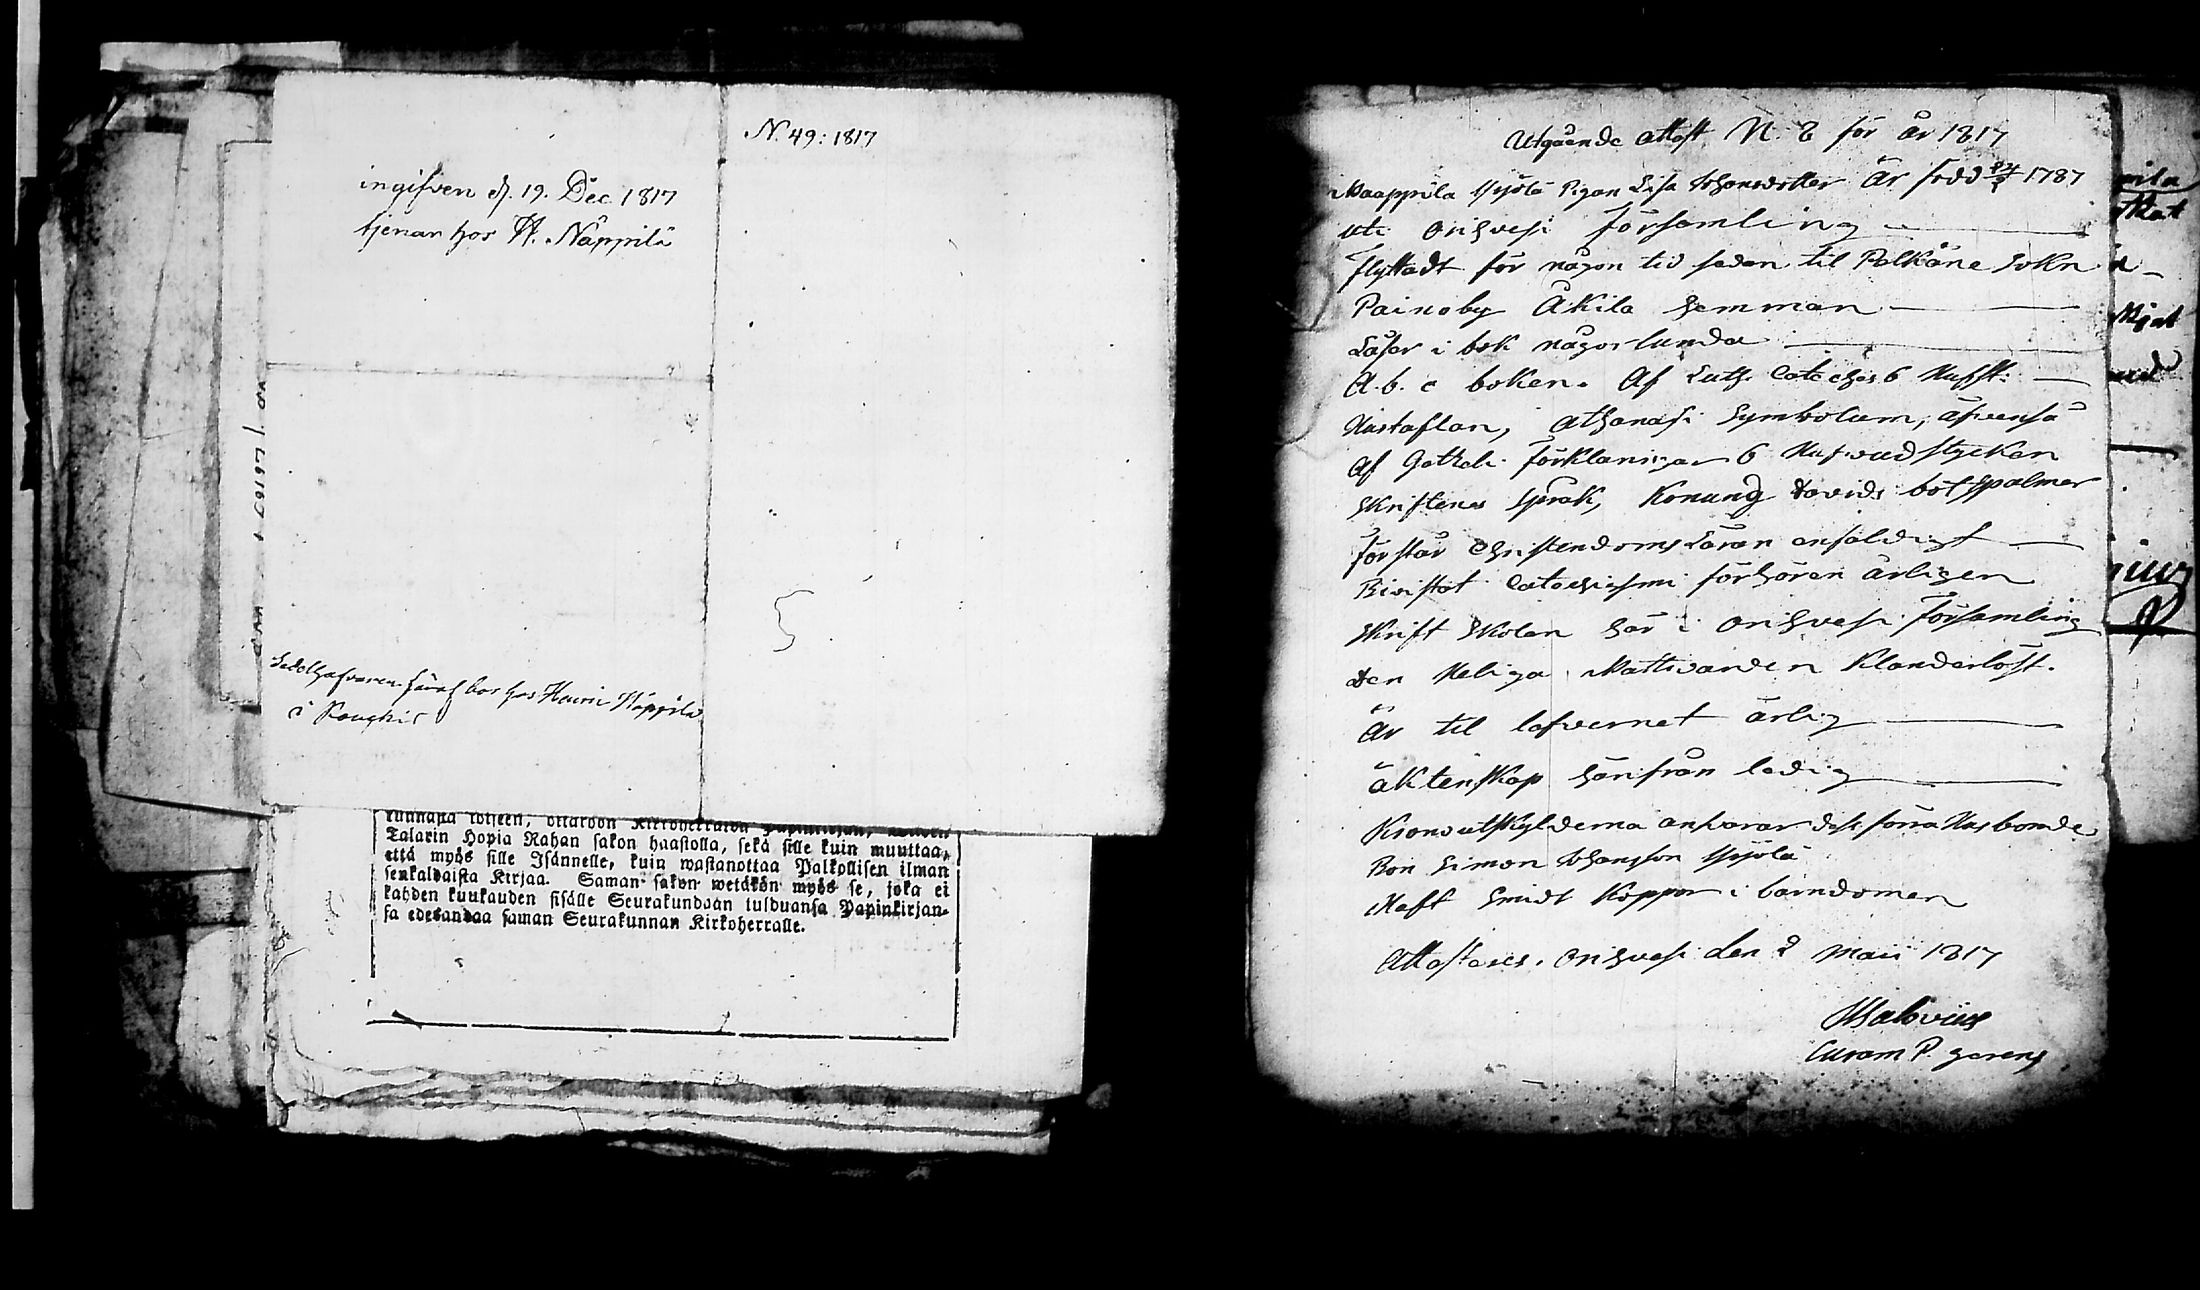 N. 49: 1817
ingifven d. 19. Dec. 1817
tjenar hos H. Näppilä
bor hos Henric Näppilä
i
Talarin Hopia Rahan sakon haastolla, sekä sille kuin muuttaa,
että myös sille Isännelle, kuin wastanottaa Palkollisen ilman
senkaldaista Kirjaa. Saman sakon wetäkön myös se, joka ei
kahden kuukauden sisälle Seurakundaan tulduansa Papinkirjan-
sa edesandaa saman Seurakunnan Kirkoherralle.
Utgående attest N. 8 för år 1817
Pigan Lisa Johansdotter är född 1787
uti Orihvesi församling
flyttadt för någon tid sedan til Palkäne Sokn
Painoby Äkila hemman
Läser i bok någorlunda
A. b. c boken. Af Luth. Cateches 6 Hufst.
Hustaflan, Athanasi Symbolum, äfvenså
Af förklaringar 6 Hufvudstycken
Skriftenes språk, Konung Davids botpsalmer
Förstår Christendoms Läran enfaldigt
Bivistat Catechismi förhören årligen
Skrift Skolan här i Orihvesi församling
den Heliga Nattvarden Klanderlöst.
Är til lefvernet ärlig
äktenskap härifrån ledig
Kronoutskylderna ansvarar dess förra Husbonde
Bon Simon Johansson
Haft Koppor i barndomen
Attesteres. Orihvesi den 2 Maii 1817
Curam P. gerens